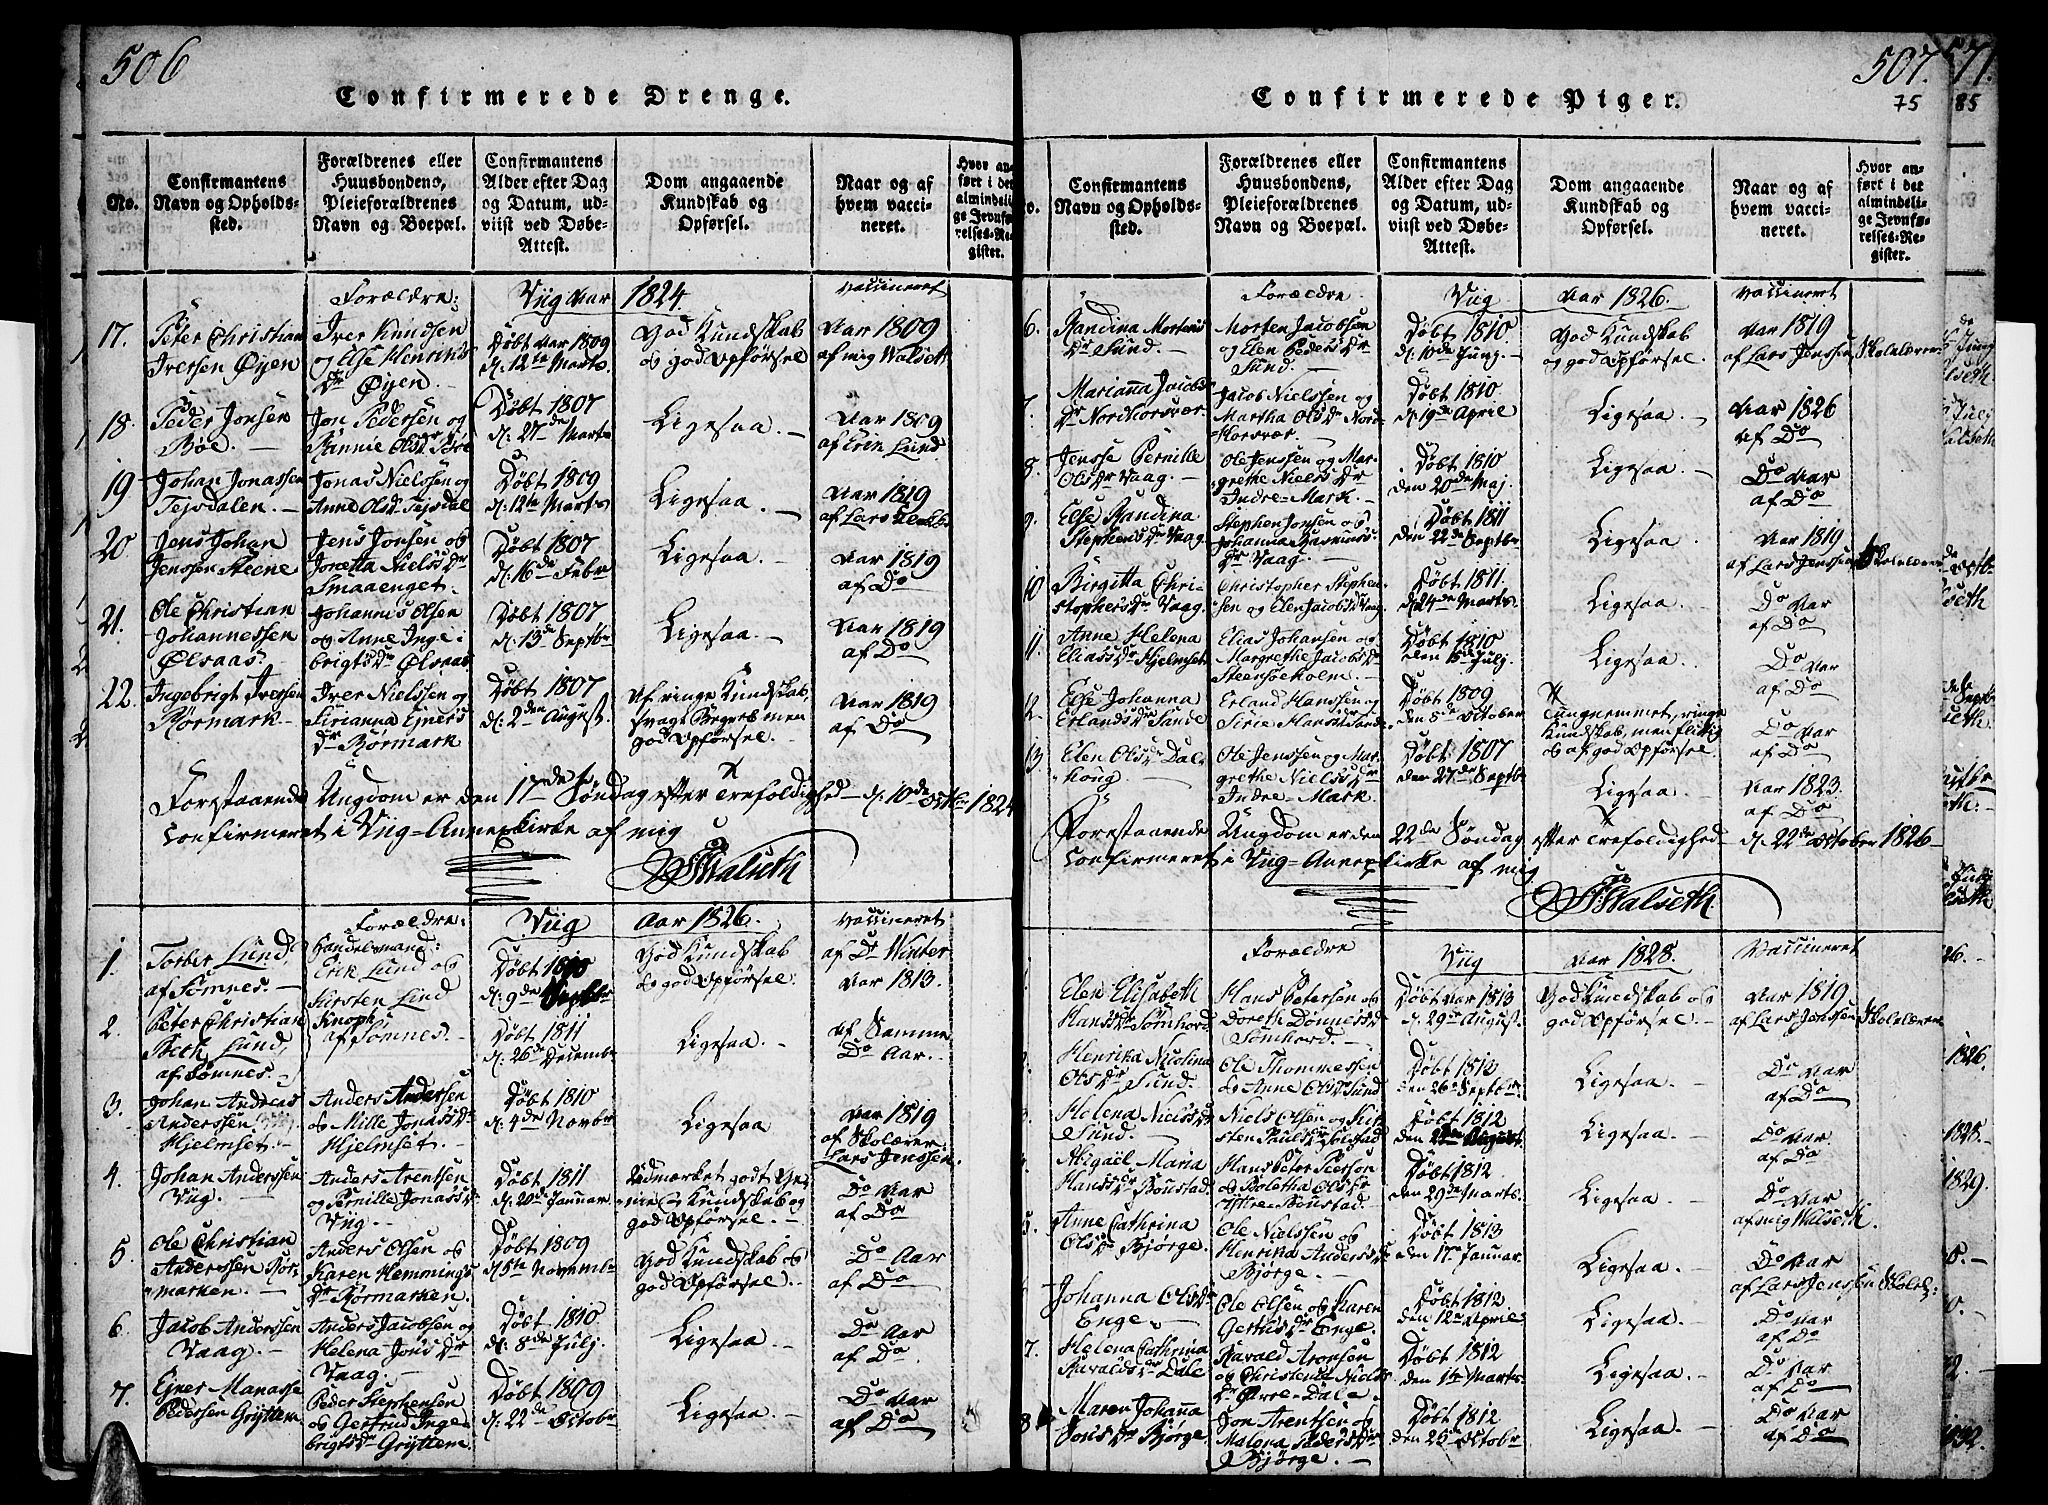 506
Confirmerede Drenge.
No.
Confirmantens
Navn og Opholds-
sted.
Forældrenes eller
Huusbondens,
Pleieforældrenes
Navn og Boepæl.
Confirmantens
Alder efter Dag
og Datum, ud-
viist ved Døbe-
Attest.
Dom angaaende
Kundskab og
Opførsel.
Naar og af
hvem vacci-
neret.
Hvor an-
ført i det
almindeli-
ge Jevnfø-
relses-Re-
gister.
Forældre:
Viig Aar 1824
Vaccineret
17.
Peter Christian
Iversen Øyen
Iver Knudsen
og Else Henriks
Dr Øyen.
Døbt Aar 1809
d: 12te Marts.
God Kundskab
og god Opførsel
Aar 1809
af mig Walseth
18.
Peder Jonsen
Bøe. —
Jon Pedersen og
Rannie Olsdr Bøe
Døbt 1807
d: 27de Marts
Ligesaa. —
Aar 1809
af Eric Lund.
19
Johan Jonassen
Tejsdalen. —
Jonas Nielssen og
Anne Olsdr Tejsdal
Døbt 1809
d: 12te Marts
Ligesaa. —
Aar 1819
af Lars
20
Jens Johan
Jenssen Steene
Jens Jonsen og
Jonetta Nielsdr
Smaaenget.
Døbt 1807
d: 16de Febr
Ligesaa. —
Aar 1819
af Do
21.
Ole Christian
Johannessen
Ølsaas.
Johannis Olsen
og Anne Inge i
brigtsdr Ølsaas
Døbt 1807
d: 13de Septbr
Ligesaa. —
Aar 1819
af Do
22.
Ingebrigt Iversen
Rørmark. —
Iver Nielssen og
Sirianna Ejners
Dr Rørmark
Døbt 1807
d: 2den August.
Af ringe Kundskab,
svagt Begreb men
god Opførsel. —
Aar 1819
af Do
Forestaaende Ungdom er den 17de Søndag efter Trefoldighed — d: 10de Octbr 1824
confirmeret i Viig-Annexkirke af mig
Walseth
Forældre:
Viig Aar 1826.
Vaccineret
1.
Torber Lund,
af Sømnes. —
Handelsmand:
Erik Lund og
Kirsten Lind
Knoph
af Sømnes.
Døbt 1810
d: 9de Septbr
God Kundskab
og god Opførsel.
af Dr Winter
Aar 1813.
2.
Peter Christian
Beth Lund,
af Sømnes. —
Døbt 1811
d: 26de Decembr
Ligesaa. —
af Samme
Do Aar. —
3.
Johan Andreas
Anderssen
Hjelmset. —
Anders Anderssen
og Mille Jonasdr
Hjelmset. —
Døbt 1810
d: 4de Novbr
Ligesaa
Aar 1819
af Skolærer
Lars Jenssen.
4.
Johan Anderssen
Viig. —
Anders Arentsen
og Pernille Jonasdr
Viig. —
Døbt 1811
d: 20de Januar
Udmærket godt Ge-
nie og Kundskab og
god Opførsel. —
Do Aar
af Do
5.
Ole Christian
Anderssen Rør-
marken. —
Anders Olsen og
Karen Hemmings
Dr Rørmarken.
Døbt 1809
d: 5te Novembr
God Kundskab og
god Opførsel. —
Do Aar
af Do
6.
Jacob Anderssen
Vaag. —
Anders Jacobsen og
Helena Jonsdr
Vaag. —
Døbt 1810
d: 8de Julj.
Ligesaa. —
Do Aar
af Do
7.
Ejner Manasse
Pedersen Gryttem
Peder Stephensen
og Gertrud Inge-
brigtsdr Gryttem
Døbt 1809
d: 22de Octobr
Ligesaa. —
Do Aar
af Do
507.
75
Confirmerede Piger.
Confirmantens
Navn og Opholds-
sted.
Forældrenes eller
Huusbondens,
Pleieforældrenes
Navn og Boepæl.
Confirmantens
Alder efter Dag
og Datum, ud-
viist ved Døbe-
Attest.
Dom angaaende
Kundskab og
Opførsel.
Naar og af
hvem vacci-
neret.
Hvor an-
ført i det
almindeli-
ge Jevnfø-
relses-Re-
gister.
Forældre.
Viig Aar 1826.
Vaccineret
6.
Randina Mortens
Dr Sund. —
Morten Jacobsen
og Elen Pedersdr
Sund. —
Døbt 1810.
d: 10de Junj. —
God Kundskab
og god Opførsel.
Aar 1819
af Lars Jenssen Skolelærer
7.
Marianna Jacobs
Dr Nordhorsvær.
Jacob Nielssen og
Martha Olsdr Nord-
Horsvær. —
Døbt 1810.
d: 19de April
Ligesaa. —
Aar 1826
af Do
8.
Jensse Pernille
Olsdr Vaag. —
Ole Jenssen og Mar-
grethe Nielsdr
Indre-Mark.
Døbt 1810
den 20de Maj.
Ligesaa. —
Do Aar
af Do
9.
Else Randina
Stephensdr Vaag
Stephen Jonsen og
Johanna Rasmus
Dr Vaag. —
Døbt 1811
den 22de Septbr
Ligesaa. —
Aar 1819
af Lars Jenssen Skolelærer
10
Birgitta Chri-
stophersdr Vaag.
Christopher Stephen-
sen og Elen Jacobsdr Vaag
Døbt 1811.
d: 24de Marts.
Ligesaa. —
Do Aar
af Do
11.
Anne Helena
Eliasdr Hjelmset
Elias Johansen og
Margrethe Jacobsdr
Steensøeholm.
Døbt 1810
den 15de Julj.
Ligesaa. —
Do Aar
af Do
12
Else Johanna
Erlandsdr Sande
Erland Hanssen og
Sirie Hansdr Sande
Døbt 1809
den 5te October
Tungnemmet, ringe
Kundskab, men flittig
og af god Opførsel.
Do Aar
af Do
13.
Elen Olsdr Dal-
houg. —
Ole Jenssen og Mar-
grethe Nielsdr
Indre-Mark.
Døbt 1807
den 27de Septbr
Ligesaa. —
Aar 1823.
af Do
Forestaaende Ungdom er den 22de Søndag efter Trefoldighed — d: 22de October 1826 —
confirmeret i Viig-Annexkirke af mig
Walseth
Forældre
Viig Aar 1828.
Vaccineret
Elen Elisabeth
Hansdr Sømhovd.
Hans Petersen og
Doreth Dønnesdr
Sømhovd. —
Døbt Aar 1813
d: 29de August.
God Kundskab og
god Opførsel —
Aar 1819
af Lars Jenssen Skolelærer
Henrika Nicolina
Olsdr Sund. —
Ole Thommessen
og Anne Olsdr Sund
Døbt 1812
den 26de Septbr
Ligesaa. —
Do Aar
af Do
Helena Nielsdr
Sund. —
Niels Olsen og Kir-
sten Paulsdr
Døbt 1812
den August.
Ligesaa. —
Do Aar.
af Do
Abigael Maria
Hansdr Boustad.
Hans Peter Peersøn
og Boletha Olsdr
Boustad. —
Døbt 1812
den 29de Marts.
Ligesaa. —
Do Aar
af mig Walseth.
5.
Anne Cathrina
Olsdr Bjørge.
Ole Nielssen og
Henrika Andersdr
Bjørge. —
Døbt 1813
den 17de Januar
Ligesaa. —
Do Aar
af Lars Jenssen Skolel:
Johanna Olsdr
Enge. —
Ole Olsen og Karen
Gerthsdr Enge.
Døbt 1812
den 12te April
Ligesaa. —
Do Aar
af Do
7.
Helena Cathrina
Haraldsdr Dale
Harald Aronsen
og Christena Niels
Dr Øvre-Dale. —
Døbt 1812
den 1te Marts
Ligesaa. —
Do Aar
af Do
8
Maren Johanna
Jonsdr Bjørge.
Jon Arentsen og
Malena Pedersdr
Bjørge. —
Døbt 1812
den 25de Octobr
Ligesaa. —
Do Aar
af Do
85